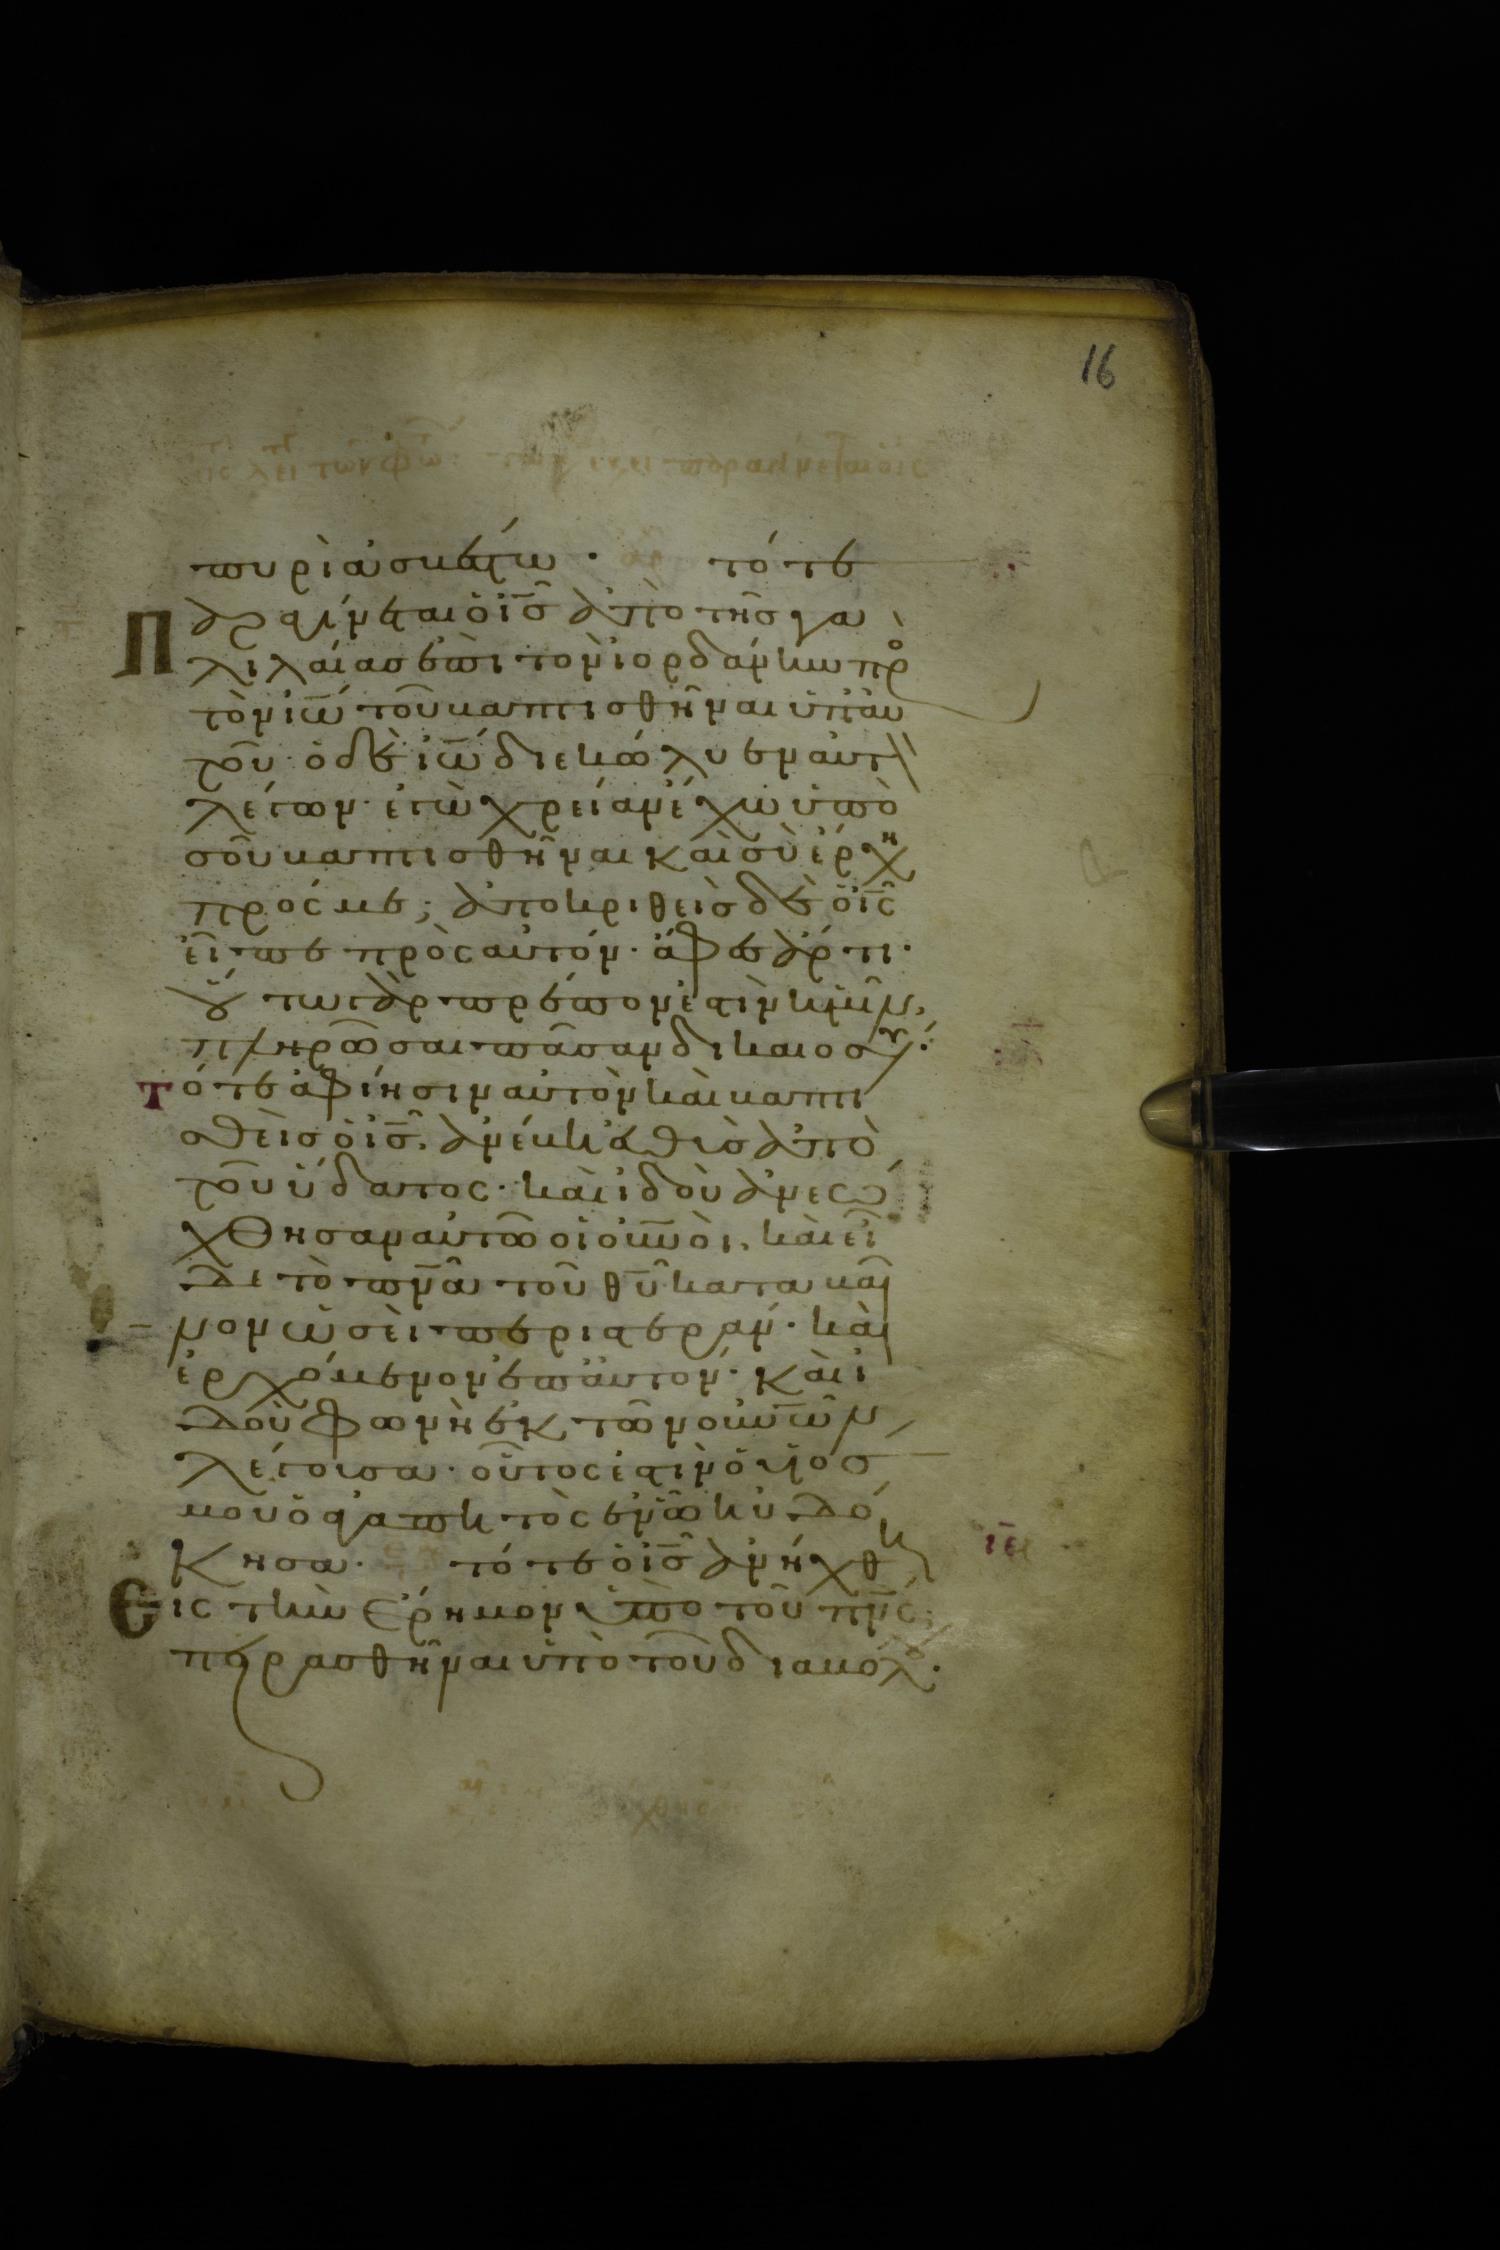 16
πυρὶ ἀσβέστω · τότε
Παραγίνεται ὁ ι̅ς̅ ἀπὸ τῆς γα
λιλαίας ἐπὶ τὸν ἰορδάνην πρὸ
τὸν ἰω̅ τοῦ βαπτισθῆναι ὑπ' αυ
τοῦ · ὁ δὲ ἰω̅ διεκώλυεν αὐτ
λέγων · ἐγὼ χρείαν ἔχω ὑπὸ
σοῦ βαπτισθῆναι καὶ σὺ ἔρχη
πρός με ; ἀποκριθεὶς δὲ ὁ ι̅ς̅
εἶπε πρὸς αὐτόν · ἄφες ἄρτι ·
οὕτω γὰρ πρέπον ἐστὶν ἡμῖν,
πληρῶσαι πᾶσαν δικαιοσύ ·
τότε ἀφίησιν αὐτὸν καὶ βαπτι
σθεὶς ὁ ι̅ς̅, ἀνέβη εὐθὺς ἀπὸ
τοῦ ὕδατος · καὶ ἰδοὺ ἀνεώ
χθησαν αὐτῶ οἱ ου̅νοὶ, καὶ εἶ
δε τὸ πν̅α τοῦ θ̅υ̅ καταβαῖ
νον ὡσεὶ περιστεράν · καὶ
ἐρχόμενον ἐπ' αὐτόν · καὶ ἰ
δοὺ φωνὴ ἐκ τῶν ου̅νῶν
λέγουσα · οὗτος ἐστὶν ὁ υἱός
μου ὁ ἀγαπητὸς ἐν ὧ ηὐδό
κησα · τότε ὁ ι̅ς̅ ἀνήχθη
εἰς τὴν ἔρημον ὑπὸ τοῦ πν̅ς,
πειρασθῆναι ὑπὸ τοῦ διαβόλ ·